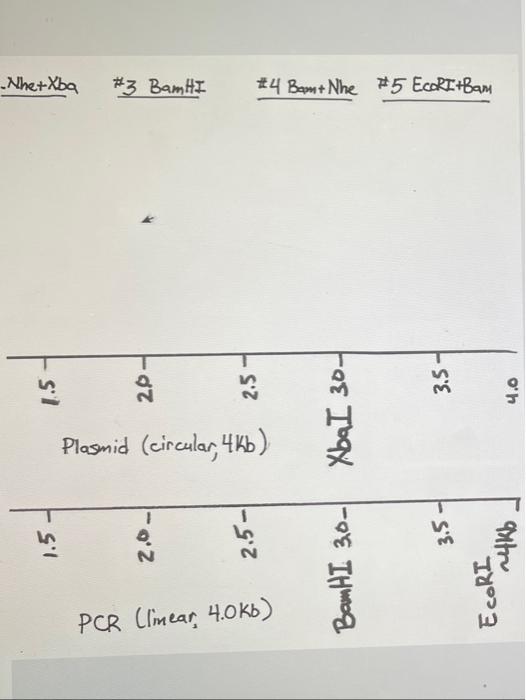 -Nhe+Xba #3 BamHI #4 Bam+Nhe #5 EcoRI+Bam
1.5 2.0 2.5 XbaI 3.0 3.5 4.0
Plasmid (circular, 4Kb)
1.5 2.0 2.5 BamHI 3.0 3.5 EcoRI ~4Kb
PCR (linear, 4.0Kb)